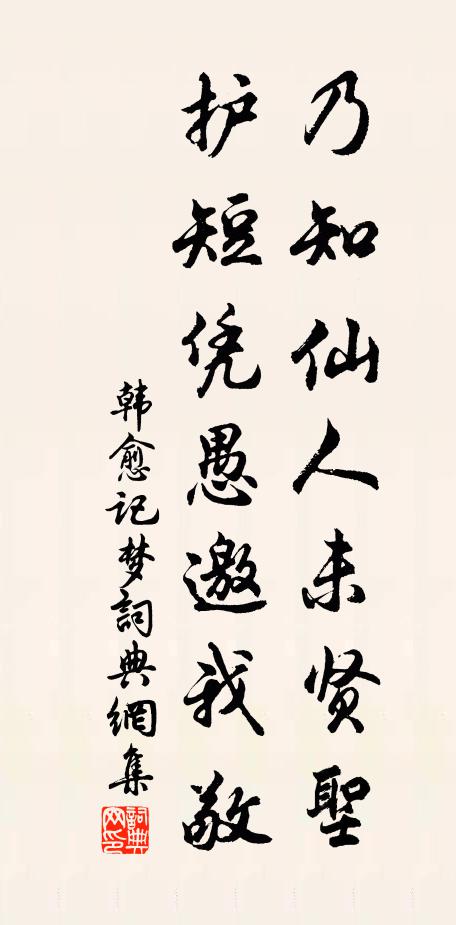 乃知仙人未贤聖
护短凭愚邀我敬
韩愈记梦詞典網集
詞典網印